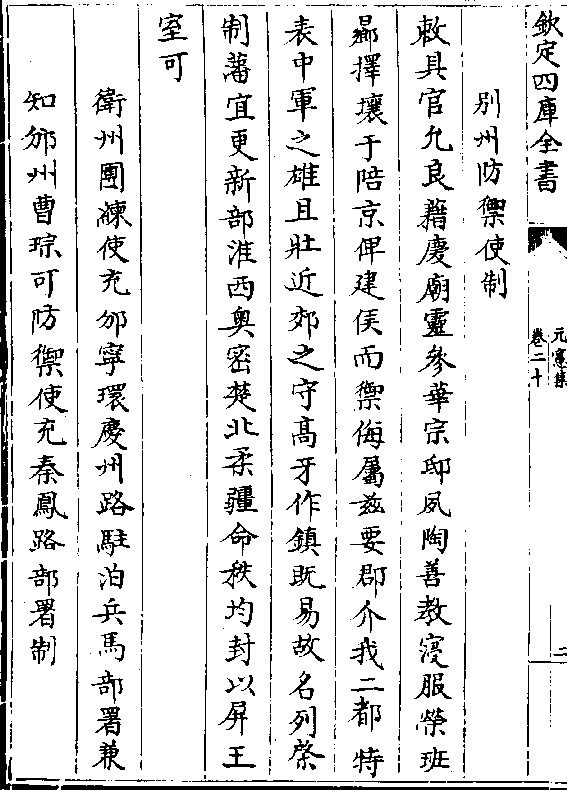 欽定四庫全書
元憲集
卷二十
二
別州防禦使制
敕具官允良藉慶廟靈參華宗邸夙陶善教寖服榮班
曏擇壤于陪京俾建侯而禦侮屬兹要郡介我二都特
表中軍之雄且壯近郊之守髙牙作鎮既易故名列棨
制藩宜更新部淮西奥密楚北柔疆命秩均封以屏王
室可
衛州團練使充邠寧環慶州路駐泊兵馬部署兼
知邠州曹琮可防禦使充秦鳳路部署制